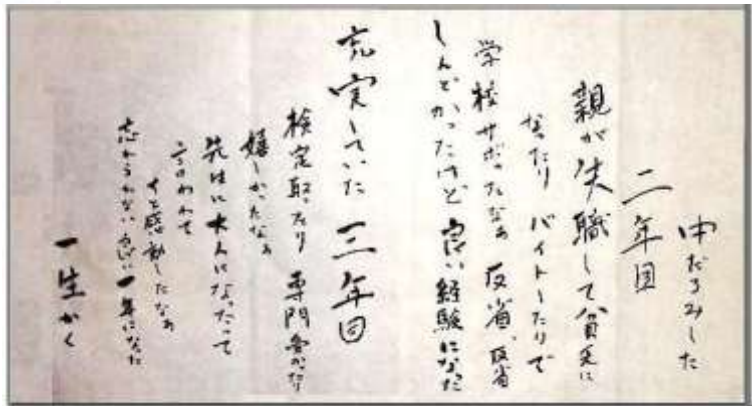 中だるみした
二年目
親が失職して貧乏に
なったり バイトしたりで
学校サボったなぁ 反省、反省
しんどかったけど 良い経験になった
充実していた 三年目
検定取ったり 専門受かったり
嬉しかったなぁ
先生に大人になったって
言われて
もと感動したなぁ
忘れられない良い一年になった
一生かく